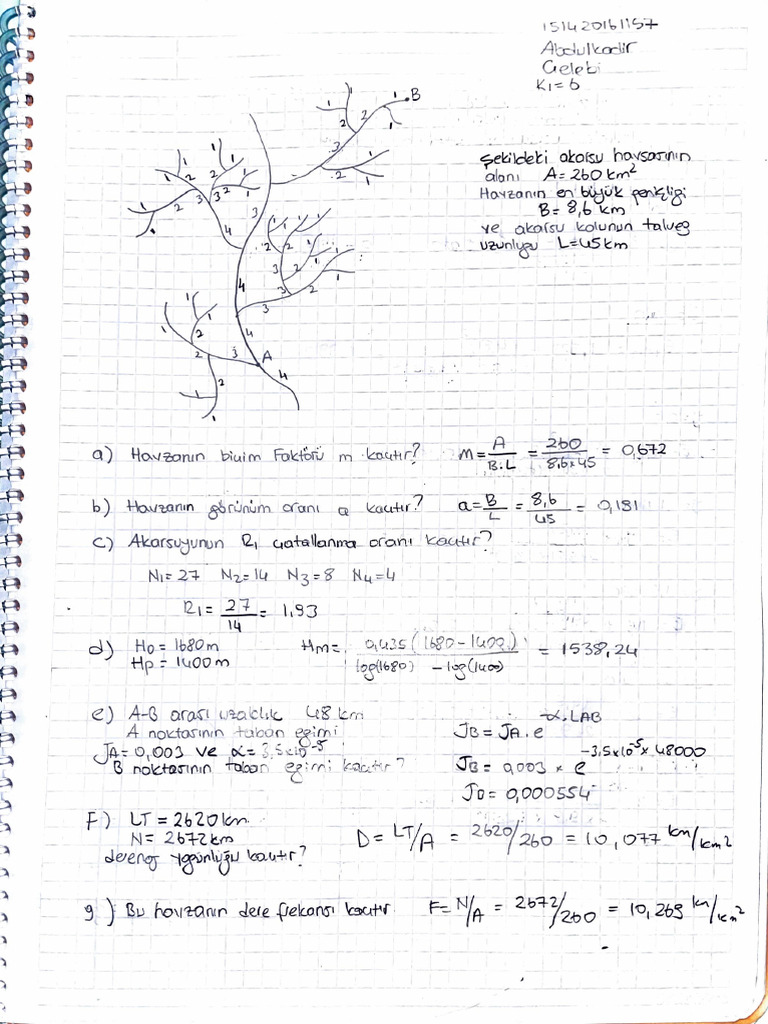 151420161157
Abdulkadir
Çelebi
K1=6
Şekildeki akarsu havsasının
alanı A=260 km²
Havzanın en büyük genişliği
B=8,6 km
ve akarsu kolunun talveg
uzunluğu L=45km
B
A
a) Havzanın biçim Faktörü m kaçtır? m=A/B.L = 260/8,6x45 = 0,672
b) Havzanın görünüm oranı a kaçtır? a=B/L = 8,6/45 = 0,181
c) Akarsuyunun R1 çatallanma oranı kaçtır?
N1=27 N2=14 N3=8 N4=4
R1= 27/14 = 1,93
d) Ho=1680m Hm= 0,435(1680-1400)/log(1680)-log(1400) = 1538,24
Hp=1400m
e) A-B arası uzaklık 48 km
A noktasının taban eğimi JB=JA.e^-α.LAB
JA=0,003 ve α=3,5x10^-5
B noktasının taban eğimi kaçtır? JB=0,003 x e^-3,5x10^-5 x 48000
JB=0,000554
F) LT=2620km
N=2672km D=LT/A = 2620/260 = 10,077 km/km²
kaçtır?
g) Bu havzanın dere frekansı kaçtır. F=N/A = 2672/260 = 10,269 kn/km²